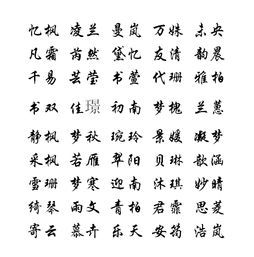 忆枫 凌兰 曼岚 万姝 未央
凡霜 芮然 黛忆 友清 韵晨
千易 芸莹 书萱 代珊 雅柏
书双 佳璟 初南 梦槐 兰蕙
静枫 梦秋 琬玲 景媛 凝梦
采枫 若雁 翠阳 贝琳 歌涵
雪珊 梦寒 迎南 沐琪 妙晴
绮琴 雨文 青柏 君霏 思菱
寄云 慕卉 乐天 安筠 浩岚